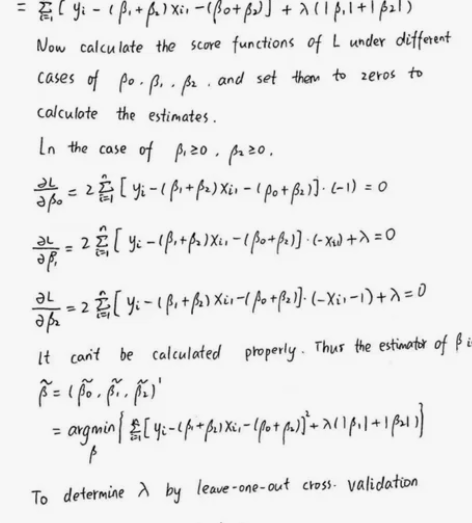 = Σ_{i=1}^{n} [ yi - (β₁+β₂) xi₁ - (β₀+β₂)] + λ(|β₁|+|β₂|)
Now calculate the score functions of L under different
cases of β₀, β₁, β₂, and set them to zeros to
calculate the estimates.
In the case of β₁≥0, β₂≥0,
∂L/∂β₀ = 2 Σ_{i=1}^{n} [ yi - (β₁+β₂) xi₁ - (β₀+β₂)]·(-1) = 0
∂L/∂β₁ = 2 Σ_{i=1}^{n} [ yi - (β₁+β₂) xi₁ - (β₀+β₂)]·(-xi₁)+λ=0
∂L/∂β₂ = 2 Σ_{i=1}^{n} [ yi - (β₁+β₂) xi₁ - (β₀+β₂)]·(-xi₁-1)+λ=0
It can't be calculated properly. Thus the estimator of β
β̃ = (β̃₀, β̃₁, β̃₂)'
= argmin_β { Σ_{i=1}^{n} [yi - (β₁+β₂) xi₁ - (β₀+β₂)]² + λ(|β₁|+|β₂|)}
To determine λ by leave-one-out cross-validation